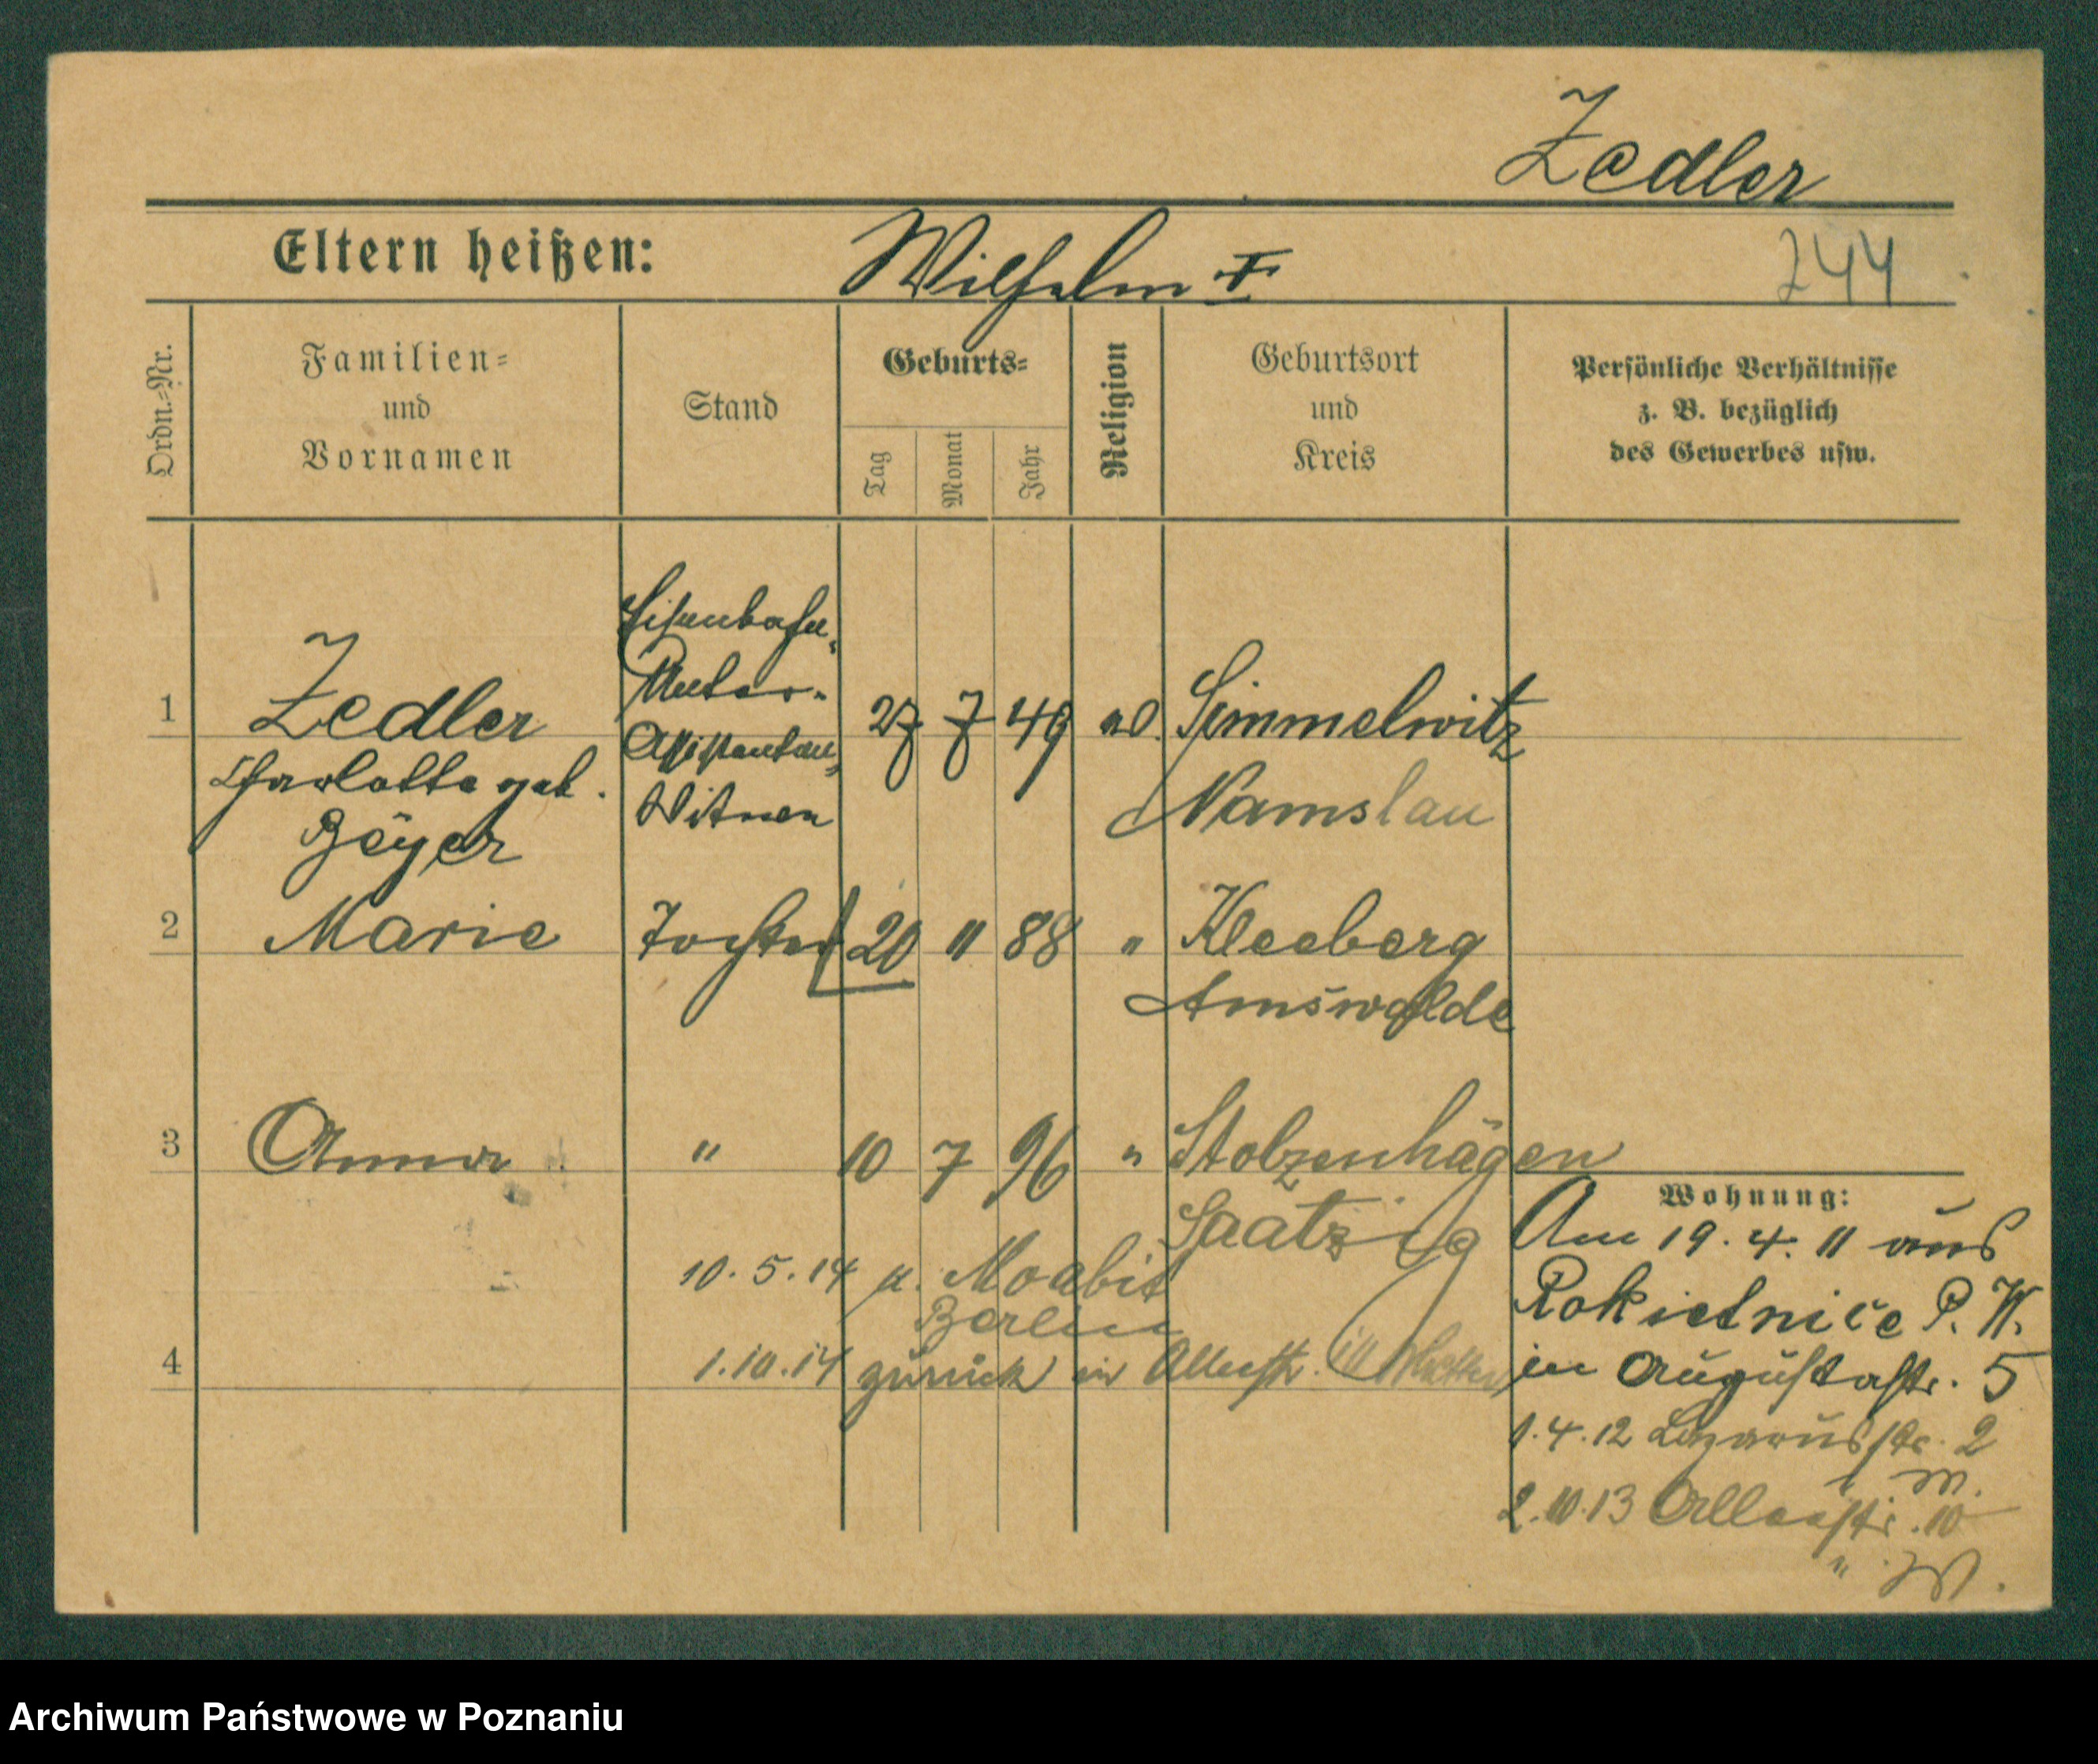 Zedler
Eltern heißen: Wilhelm †
244
Ordn.-Nr.
Familien-
und
Vornamen
Stand
Geburts-
Tag
Monat
Jahr
Religion
Geburtsort
und
Kreis
Persönliche Verhältnisse
z. B. bezüglich
des Gewerbes usw.
Eisenbahn-
Unter-
Assistenten-
Witwe
1 Zedler 27 7 49 Simmelwitz
Charlotte geb.
Namslau
Beyer
2 Marie Tochter 20 11 88 " Kleeberg
Arnswalde
3 Anna " 10 7 96 " Stolzenhagen
Saatzig
Wohnung:
Am 19. 4. 11 aus
Rokietnice P. W.
in Augustastr. 5
1. 4. 12 Lazarusstr. 2
2. 10. 13 10
10. 5. 14 n. Moabit
Berlin
4 1. 10. 14 zurück in
Archiwum Państwowe w Poznaniu